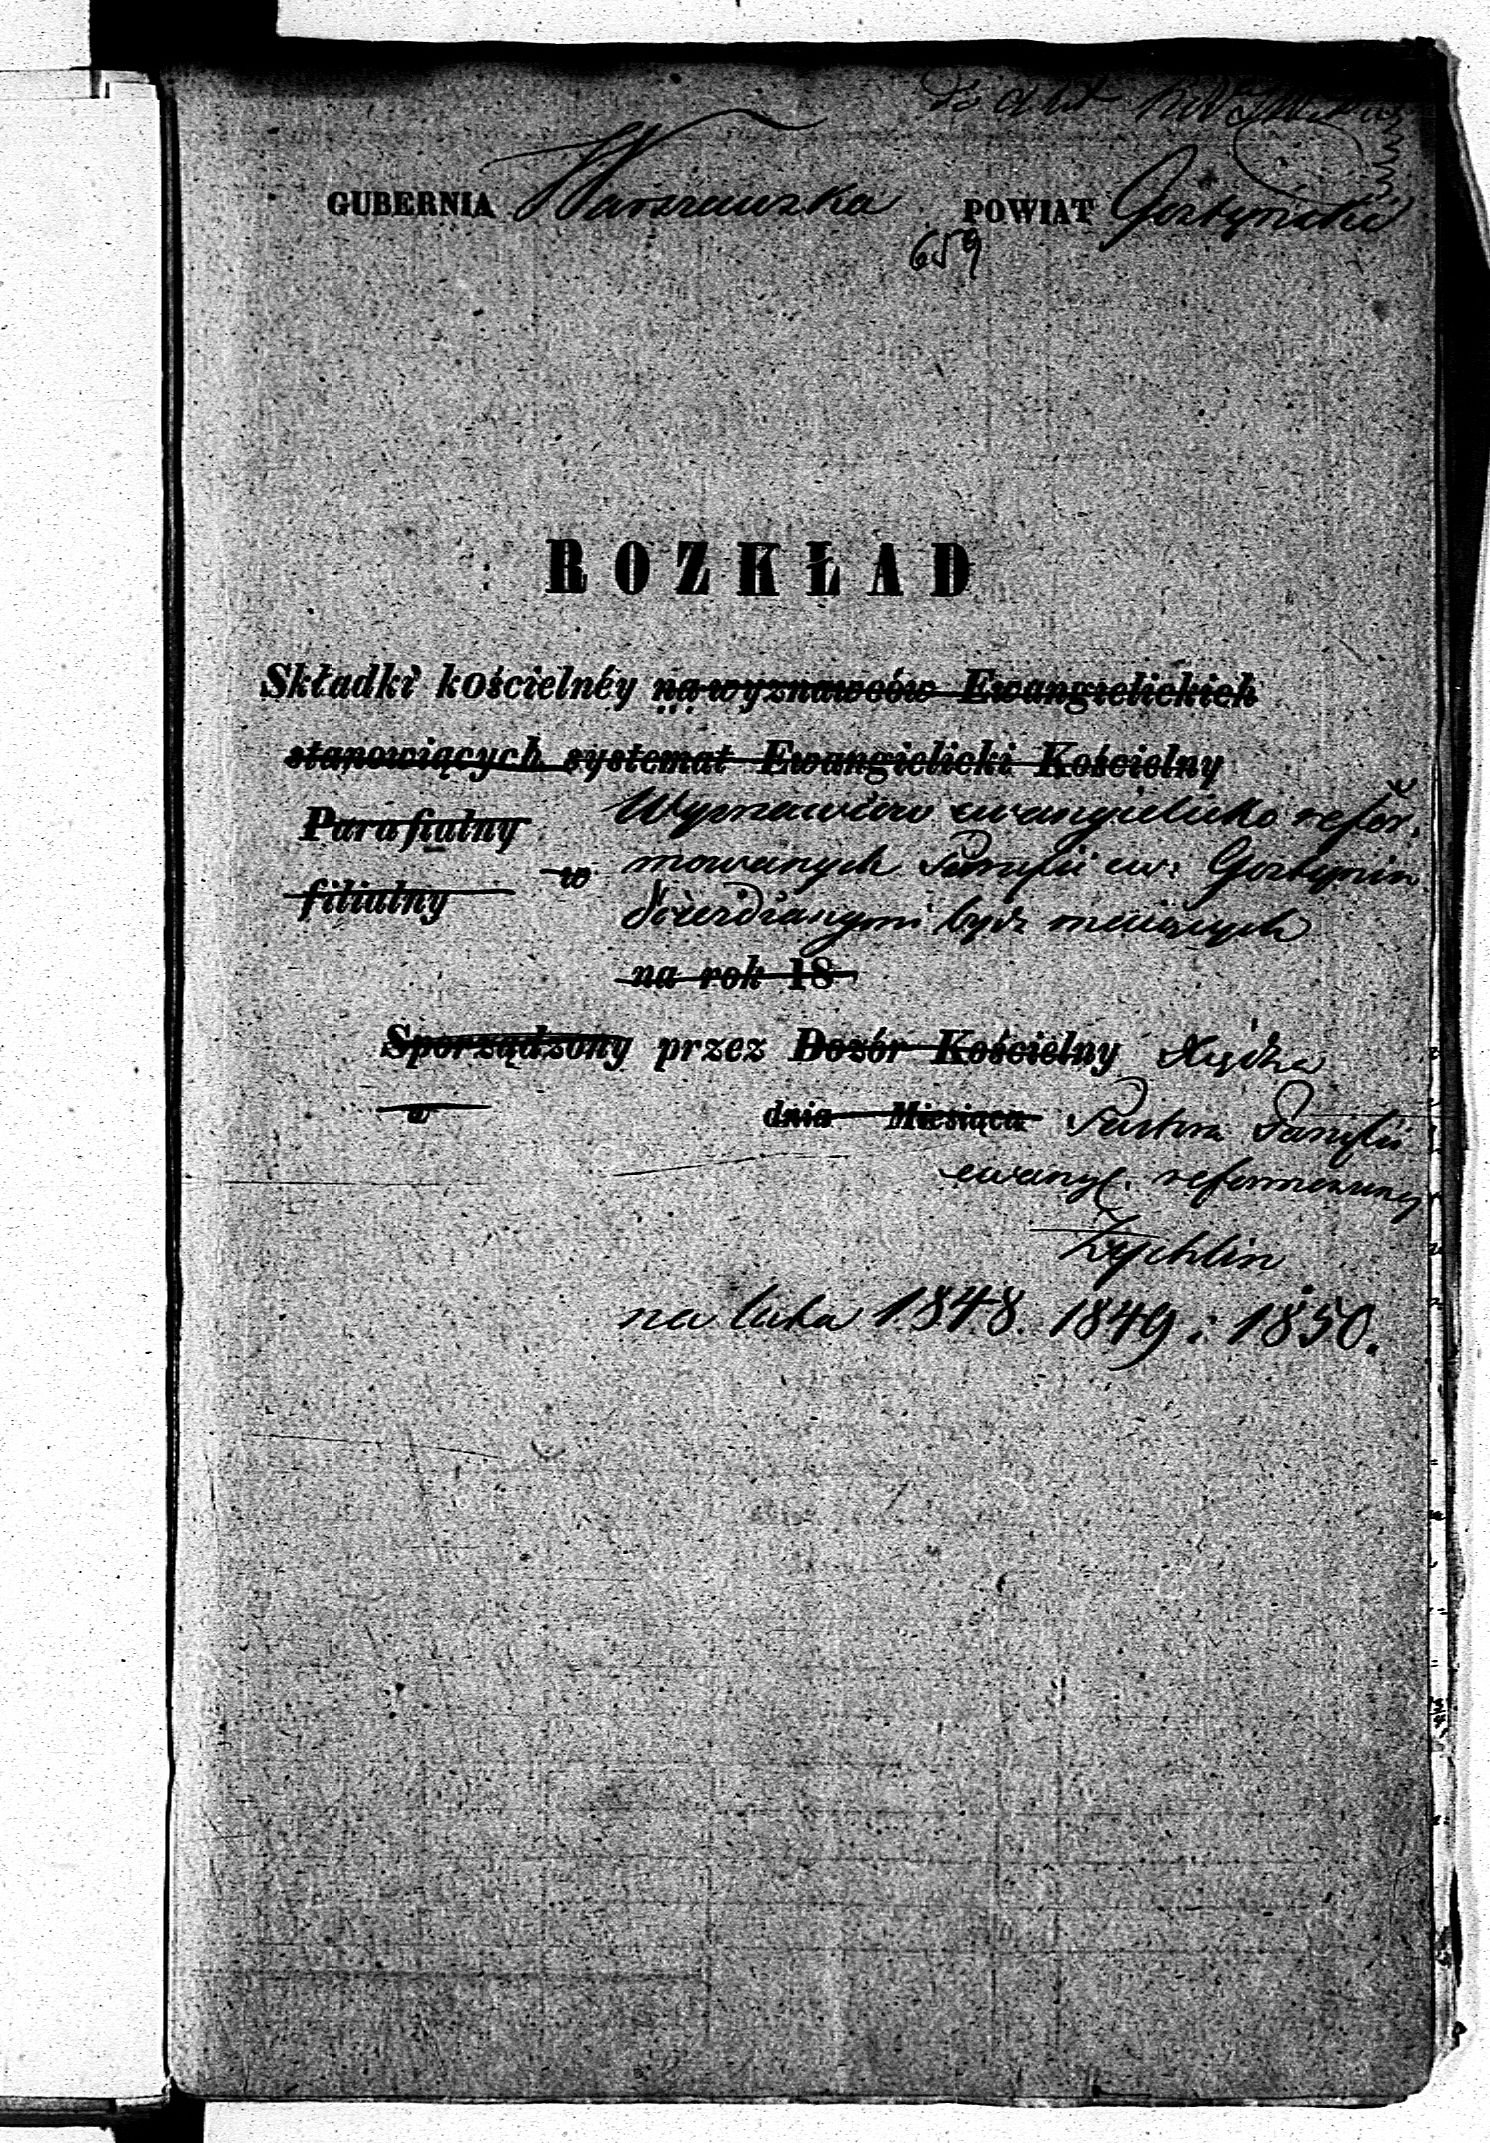 do akt
GUBERNIA Warszawska POWIAT Gostyński
659
ROZKŁAD
Składki kościelnéy na wyznawców Ewangielickich
stanowiących systemat Ewangielicki Kościelny
Parafialny Wyznawców ewangielicko refor.
filialny w mowanych Parafii ew: Gostynin
dozierdzanymi bydź maiących
na rok 18
Sporządzony przez Dozór Kościelny Xiędza
w dnia Miesiąca Pastora Parafii
ewangl. reformowanej
Żychlin
na lata 1848. 1849 i 1850.